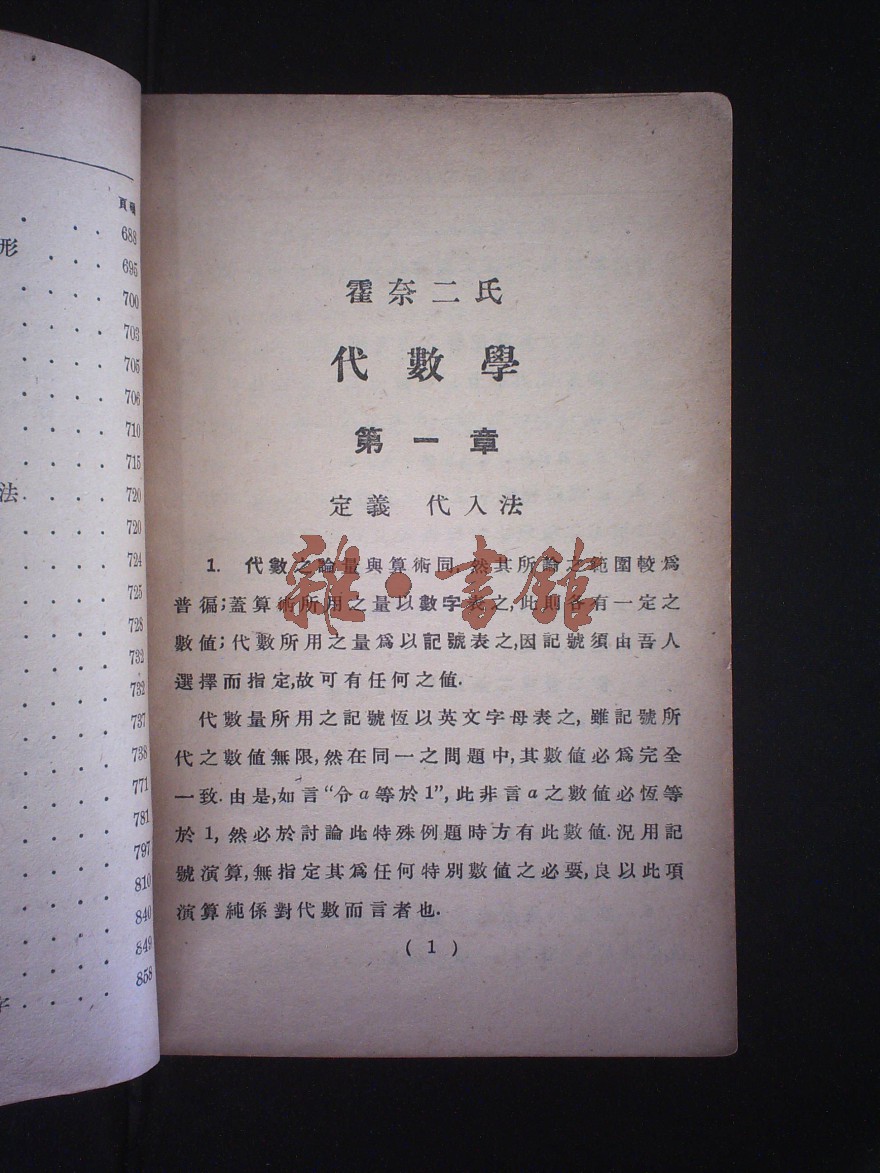 頁碼
688
形
695
700
703
705
706
710
715
法
720
720
724
725
728
732
732
737
738
771
781
797
810
840
849
858
字
霍奈二氏
代數學
第一章
定義 代入法
1. 代數之論量與算術同,然其所論之範圍較爲
普徧;蓋算術所用之量以數字表之,此則各有一定之
數值;代數所用之量爲以記號表之,因記號須由吾人
選擇而指定,故可有任何之值.
代數量所用之記號恆以英文字母表之,雖記號所
代之數值無限,然在同一之問題中,其數值必爲完全
一致.由是,如言“令a等於1”,此非言a之數值必恆等
於1,然必於討論此特殊例題時方有此數值.況用記
號演算,無指定其爲任何特別數值之必要,良以此項
演算純係對代數而言者也.
(1)
雜·書館